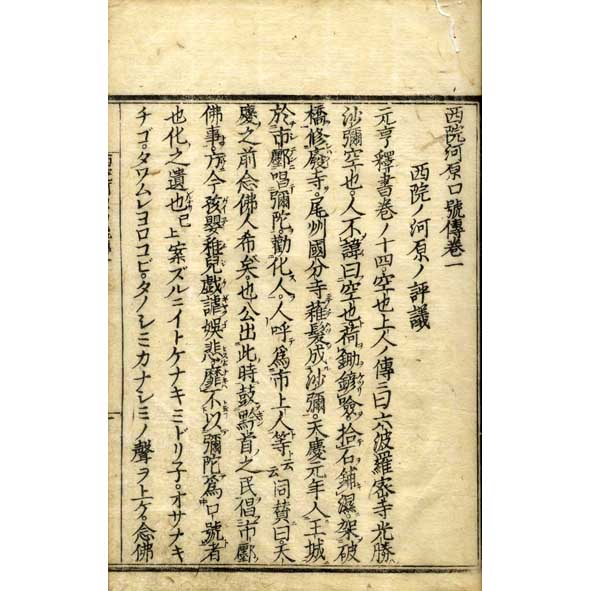 西院河原口號傳卷一
西院ノ河原ノ評議
元亨釋書卷ノ十四。空也上人ノ傳ニ曰六波羅密寺光勝
沙彌空也。人不諱曰空也荷鋤鏟險。拾石鋪濕架破
橋修廢寺。尾州國分寺薙髮成沙彌。天慶元年入王城
於市鄽唱彌陀。勸化人。人呼爲市上人等云云同賛曰。天
慶之前念佛人希矣。也公出此時鼓黔首之民倡市鄽
佛事。方今孩嬰稚兒戲謔娛悲靡不以彌陀爲口號者
也化之遺也已上案ズルニイトケナキミドリ子。オサナキ
チゴ。タワムレヨロコビ。タノシミカナシミノ聲ヲ上ケ。念佛